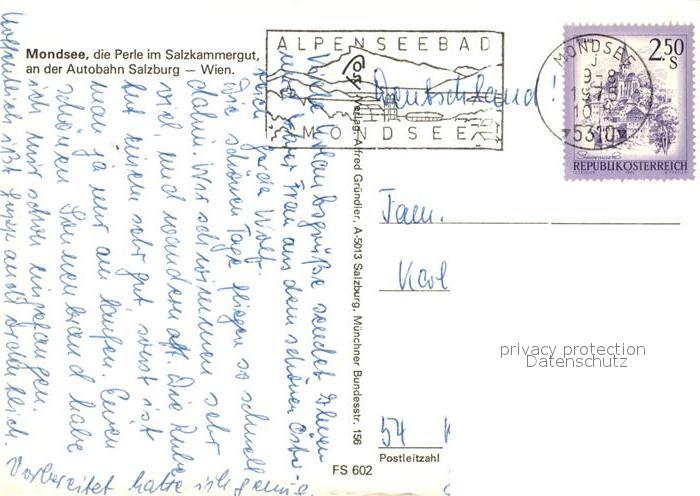 Mondsee, die Perle im Salzkammergut,
an der Autobahn Salzburg — Wien.
ALPENSEEBAD
MONDSEE
MONDSEE
5310
2.50
S
REPUBLIK ÖSTERREICH
Deutschland!
Post
Verlag Alfred Gründler, A-5013 Salzburg, Münchner Bundesstr. 156
Viele Urlaubsgrüße sendet Ihnen
und Ihrer Frau aus dem schönen Öster-
reich
Die schönen Tage fliegen so schnell
dahin. Wir schwimmen sehr
viel und wandern oft. Die Ruhe
tut einem sehr gut, sonst ist
man ja nur am laufen. Einen
schönen Sonnenbrand habe
ich mir schon eingefangen.
Hoffentlich
Vorbereitet hatte ich
Fam.
Karl
54
Postleitzahl
FS 602
privacy protection
Datenschutz